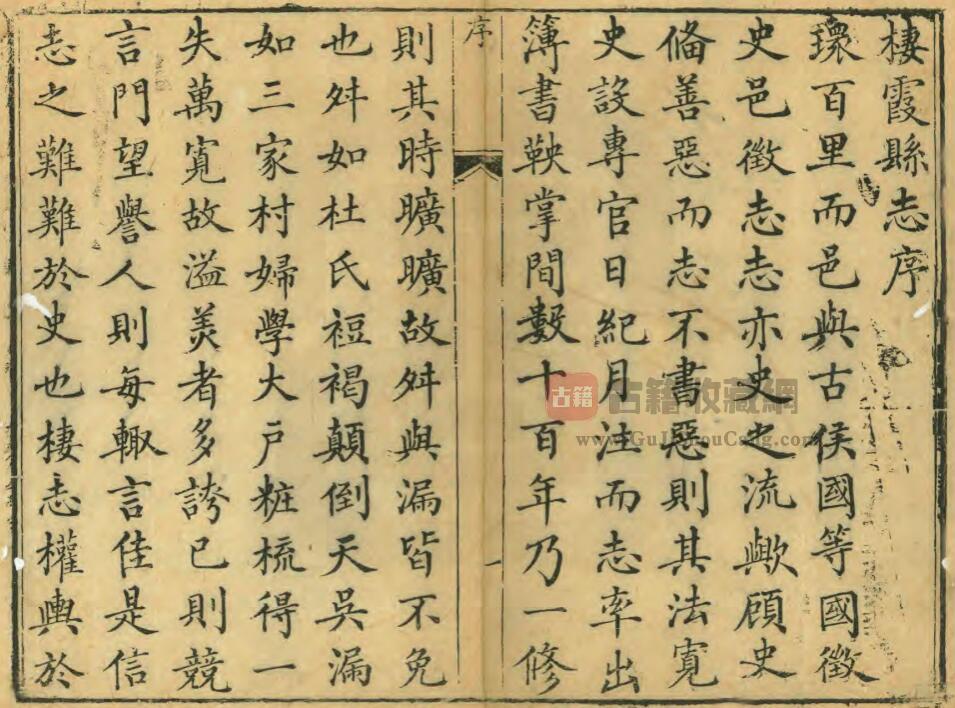 棲霞縣志序
環百里而邑與古侯國等國徵
史邑徵志志亦史之流歟顧史
俻善惡而志不書惡則其法寛
史設專官日紀月注而志率出
簿書鞅掌間數十百年乃一修
序
一
則其時曠曠故舛與漏皆不免
也舛如杜氏裋褐顛倒天吳漏
如三家村婦學大戸粧梳得一
失萬寛故溢美者多誇已則競
言門望譽人則每輙言佳是信
志之難難於史也棲志權輿於
古籍
古籍收藏網
www.GuJiShouCang.com